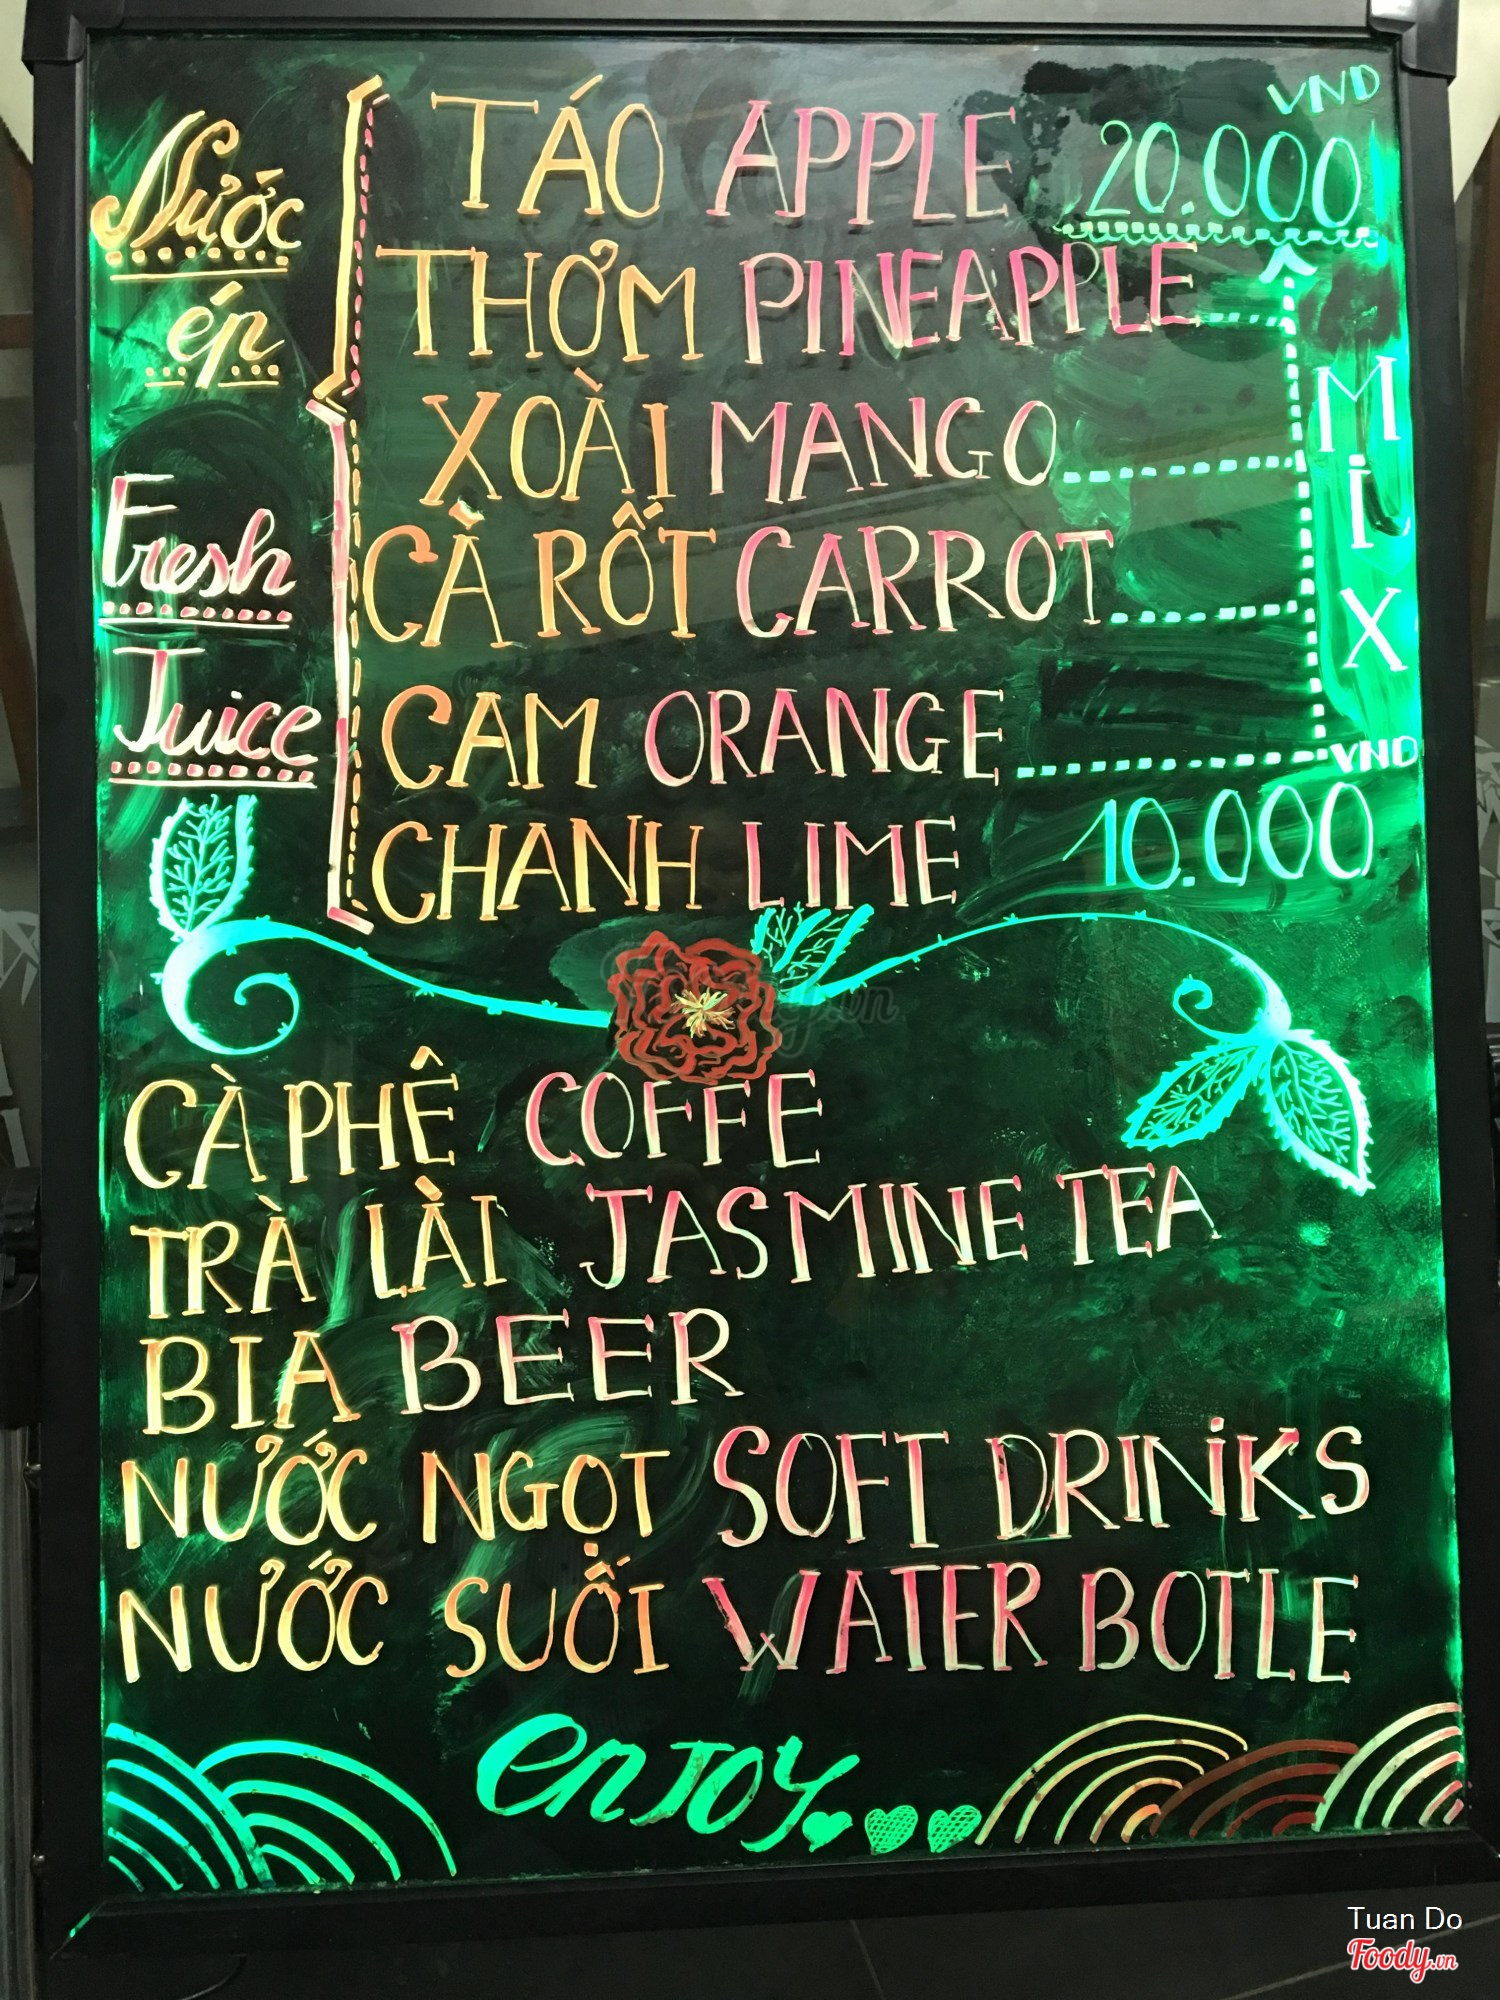 Nước
ép
Fresh
Juice
VND
TÁO APPLE 20.000
THƠM PINEAPPLE
XOÀI MANGO
CÀ RỐT CARROT
CAM ORANGE
MiX
VND
CHANH LIME 10.000
CÀ PHÊ COFFE
TRÀ LÀI JASMINE TEA
BIA BEER
NƯỚC NGỌT SOFT DRiNKS
NƯỚC SUỐI WATER BOTLE
enJOY
Tuan Do
Foody.vn